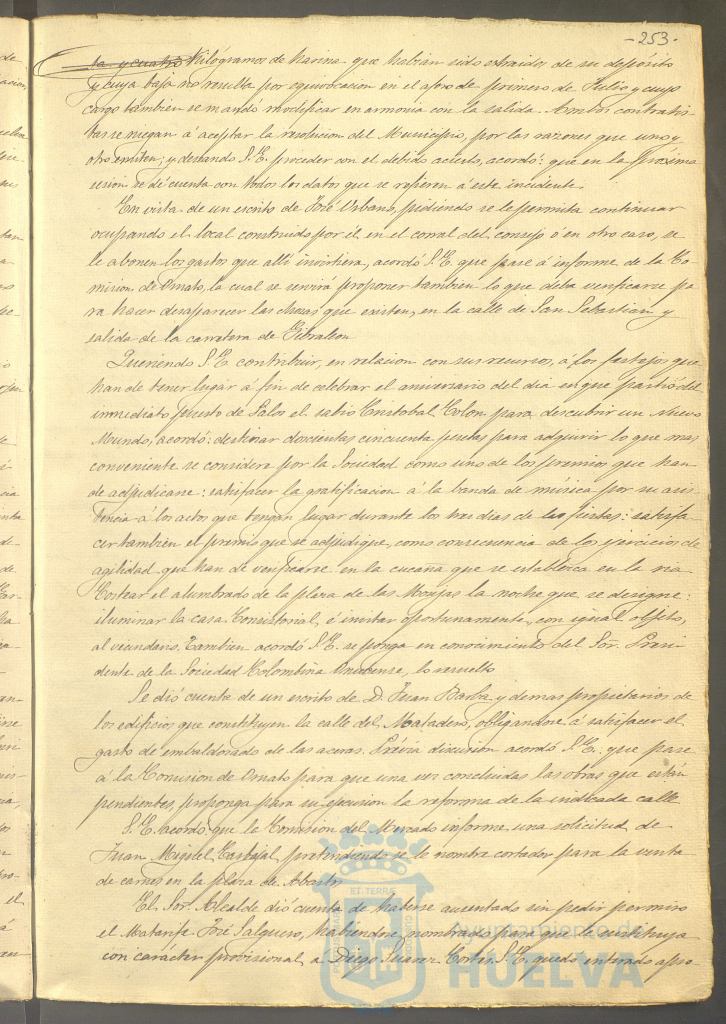 -253-
ta y cuatro Kilógramos de harina que habian sido extraidos de su depósito
y cuya baja no resulta por equivocacion en el aforo de primero de Julio y cuyo
cargo tambien se mandó modificar en armonia con la salida. Ambos contratis-
tas se niegan á aceptar la resolucion del Municipio, por las razones que uno y
otro emiten; y deseando S.E. proceder con el debido acierto, acordó: que en la próxima
sesion se dé cuenta con todos los datos que se refieren á este incidente.
En vista de un escrito de José Urbano, pidiendo se le permita continuar
ocupando el local construido por él en el corral del consejo ó en otro caso, se
le abonen los gastos que alli invirtiera, acordó S.E. que pase á informe de la Co-
mision de Ornato, la cual se servirá proponer tambien lo que deba verificarse pa-
ra hacer desaparecer las chozas que existen, en la calle de San Sebastian y
salida de la carretera de Gibraleon
Queriendo S.E. contribuir, en relacion con sus recursos, á los festejos que
han de tener lugar á fin de celebrar el aniversario del dia en que partió del
inmediato puerto de Palos el sabio Cristobal Colon para descubrir un Nuevo
Mundo, acordó: destinar doscientas cincuenta pesetas para adquirir lo que mas
conveniente se considere por la Sociedad como uno de los premios que han
de adjudicarse: satisfacer la gratificacion á la banda de música por su asis-
tencia á los actos que tengan lugar durante los tres dias de las fiestas: satisfa-
cer tambien el premio que se adjudique, como consecuencia de los ejercicios de
agilidad que han de verificarse en la cucaña que se establezca en la ria
Costear el alumbrado de la plaza de las Monjas la noche que se designe:
iluminar la casa Consistorial, é invitar oportunamente, con igual objeto,
al vecindario. Tambien acordó S.E. se ponga en conocimiento del Sor. Presi-
dente de la Sociedad Colombina Onubense, lo resuelto
Se dió cuenta de un escrito de D. Juan Barba y demas propietarios de
los edificios que constituyen la calle del Matadero, obligandose á satisfacer el
gasto de embaldosado de las aceras. Previa discusion acordó S.E. que pase
á la Comision de Ornato para que una vez concluidas las obras que están
pendientes, proponga para su ejecusion la reforma de la indicada calle
S.E. acordó que la Comision del Mercado informe una solicitud de
Juan Miguel Carbajal pretendiendo se le nombre cortador para la venta
de carnes en la plaza de Abastos
El Sor. Alcalde dió cuenta de haberse ausentado sin pedir permiso
el Matarife José Salguero, habiendose nombrado para que le sustituya
con carácter provisional, a Diego Suarez Cortés. S.E. quedó enterado apro-
Ayuntamiento de
HUELVA